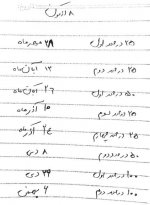 ۸ اکتران
۲۵ درصد اول ۲۸ مهر ماه
۲۵ درصد دوم ۱۲ آبان ماه
۵۰ درصد اول ۲۶ آبان ماه
۲۵ درصد سوم ۱۰ آذر ماه
۲۵ درصد چهارم ۲۴ آذر ماه
۵۰ درصد دوم ۸ دی
۱۰۰ درصد اول ۲۹ دی
۱۰۰ درصد دوم ۶ بهمن